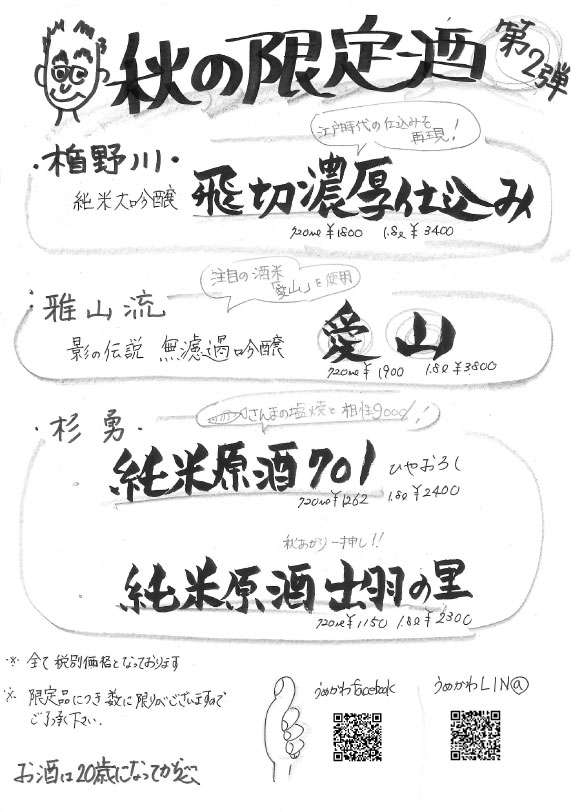 秋の限定酒
第2弾
江戸時代の仕込みを
再現！
・楯野川・
純米大吟醸
飛切濃厚仕込み
720ml ¥1800 1.8ℓ ¥3400
注目の酒米
「愛山」を使用
雅山流
影の伝説 無濾過吟醸
愛山
720ml ¥1900 1.8ℓ ¥3800
さんまの塩焼と相性good!!
・杉勇・
純米原酒701
ひやおろし
720ml ¥1262 1.8ℓ ¥2400
秋あがり一押し!!
純米原酒 出羽の里
720ml ¥1150 1.8ℓ ¥2300
※ 全て税別価格となっております
※ 限定品につき数に限りがございますので
ご了承下さい.
お酒は20歳になってから
うめかわfacebook
うめかわLINE@